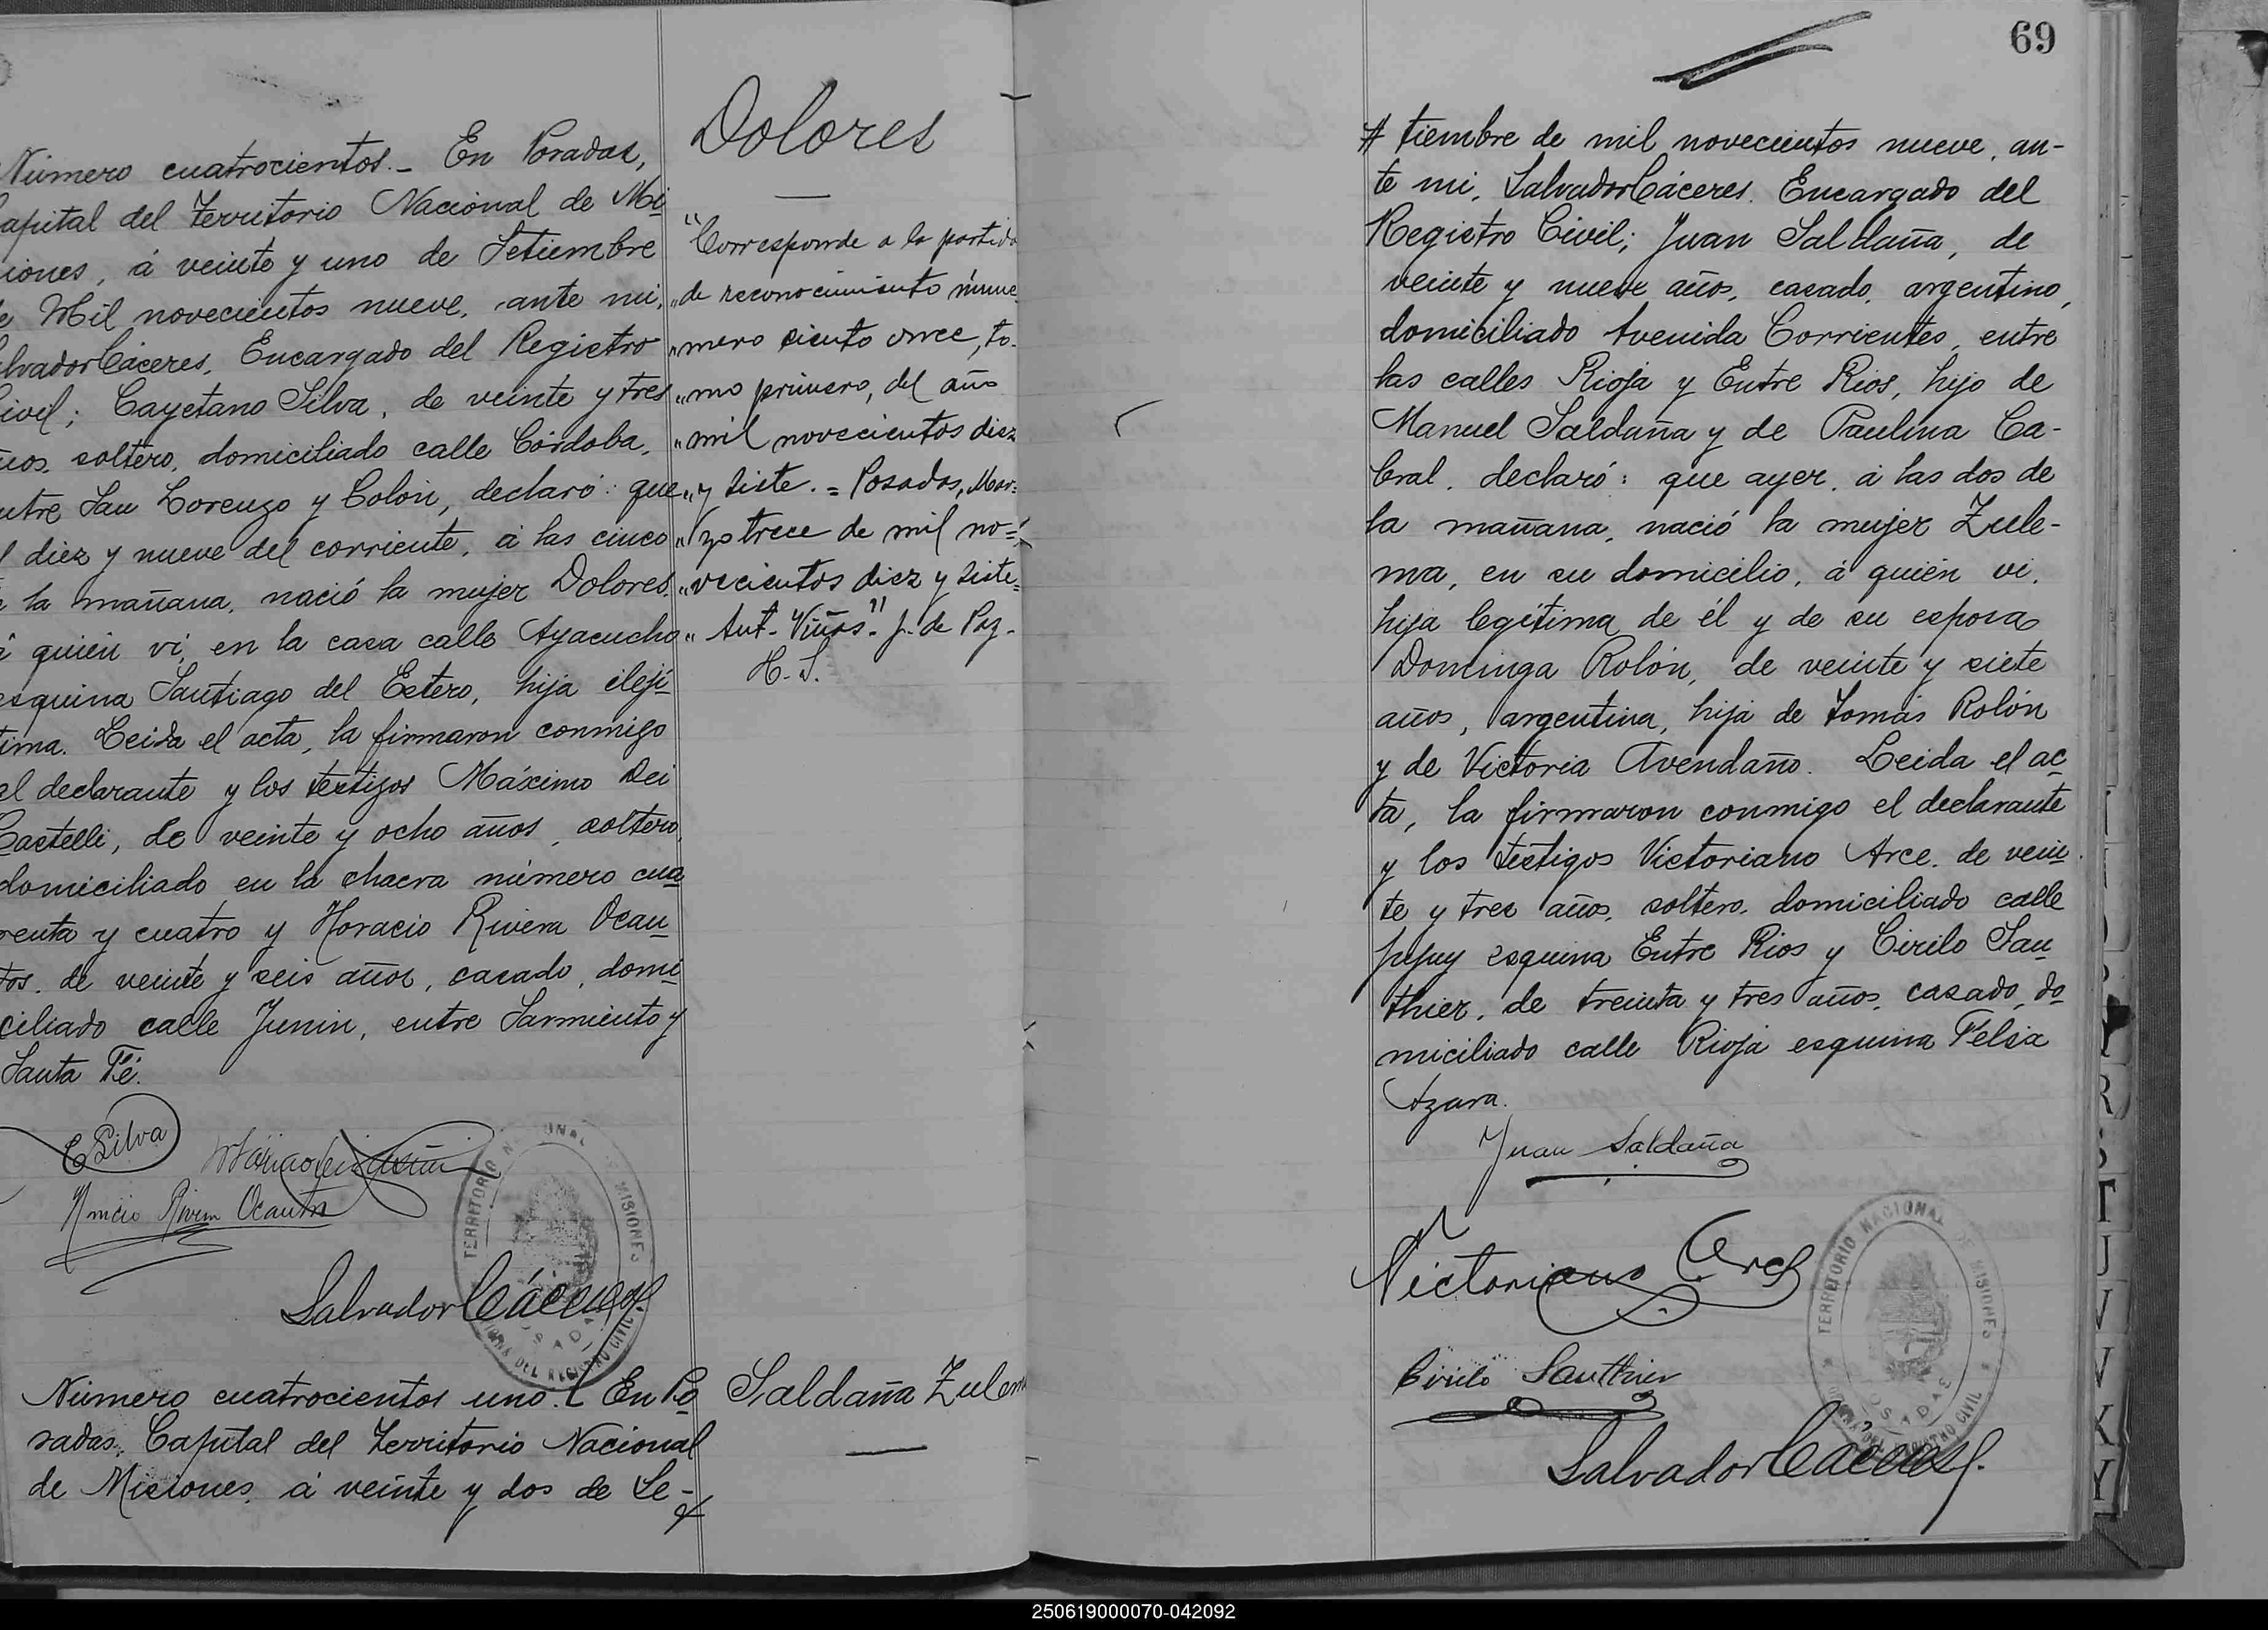 Número cuatrocientos.- En Posadas,
apital del Territorio Nacional de Mi
iones, á veinte y uno de Setiembre
e Mil novecientos nueve, ante mi,
lvador Cáceres, Encargado del Registro
ivil; Cayetano Silva, de veinte y tres
ños, soltero, domiciliado calle Córdoba,
ntre San Lorenzo y Colón, declaró: que
l diez y nueve del corriente, á las cinco
e la mañana, nació la mujer Dolores,
á quien vi, en la casa calle Ayacucho
esquina Santiago del Estero, hija ileji
tima. Leida el acta, la firmaron conmigo
el declarante y los testigos Máximo Dei
Castelli, de veinte y ocho años, soltero,
domiciliado en la chacra número cua
renta y cuatro y Horacio Rivera Ocan
tos, de veinte y seis años, casado, domi
ciliado calle Junin, entre Sarmiento y
Santa Fé.
C Silva
Horacio Rivera Ocantos
Salvador Cáceres
TERRITORIO NACIONAL MISIONES
POSADAS
DEL REGISTRO CIVIL
Número cuatrocientos uno. En Po
sadas, Capital del Territorio Nacional
de Misiones, á veinte y dos de Se-
Dolores
"Corresponde a la partida
„de reconocimiento núme
„mero ciento once, to-
„mo primero, del año
„mil novecientos diez
„y siete.= Posadas, Mar=
„zo trece de mil no=
„vecientos diez y siete=
„Ant. Viñas". J. de Paz.
H. S.
Saldaña Zulem
69
# tiembre de mil novecientos nueve, an-
te mi, Salvador Cáceres, Encargado del
Registro Civil; Juan Saldaña, de
veinte y nueve años, casado, argentino,
domiciliado Avenida Corrientes, entre
las calles Rioja y Entre Rios, hijo de
Manuel Saldaña y de Paulina Ca-
bral, declaró: que ayer, á las dos de
la mañana, nació la mujer Zule-
ma, en su domicilio, á quién vi,
hija legítima de él y de su esposa
Dominga Rolón, de veinte y siete
años, argentina, hija de Tomás Rolón
y de Victoria Avendaño. Leida el ac
ta, la firmaron conmigo el declarante
y los testigos Victoriano Arce, de vein
te y tres años, soltero, domiciliado calle
Jujuy esquina Entre Rios y Cirilo San
thier, de treinta y tres años, casado, do
miciliado calle Rioja esquina Felix
Azara.
Juan Saldaña
Victoriano Arce
Cirilo Santhier
Salvador Cáceres
TERRITORIO NACIONAL DE MISIONES
POSADAS
REGISTRO CIVIL
R
S
T
U
V
V
K
Y
250619000070-042092